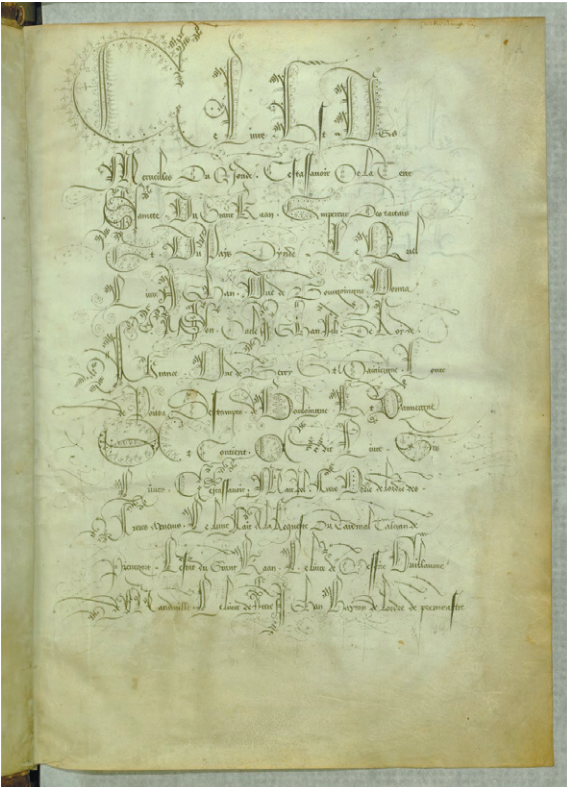 Ce Livre Est Des
Merveilles Du Monde. Cest assavoir De la Terre
Saincte Du Grant Kaan. Empereur Des tartars
Et Du Pays Dynde. Le Quel
Livre Jehan. Duc de Bourgoingne Donna
A Son. Oncle Jehan Filz De Roy de.
France. Duc de Berry Et dauviergne Conte
de Poitou. Destampes. De Bouloingne. Et Dauvergne
Et Contient. Le dit Livre. Six
Livres. Cest assavoir. Marc Pol. Frere Odric de lordre des
Freres meneurs. Le livre Fait a la Requeste Du Cardinal Taleran de
Pierregort. Lestat du Grant Kaan. Le livre de Messire Guillaume
de Mandeville. Le livre de Frere Jehan Hayton de lordre de premonstre